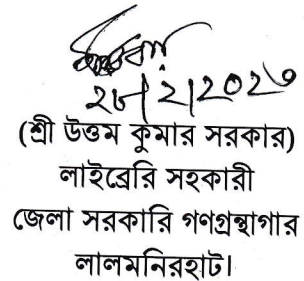 ২৮।২।২০২৩
(শ্রী উত্তম কুমার সরকার)
লাইব্রেরি সহকারী
জেলা সরকারি গণগ্রন্থাগার
লালমনিরহাট।